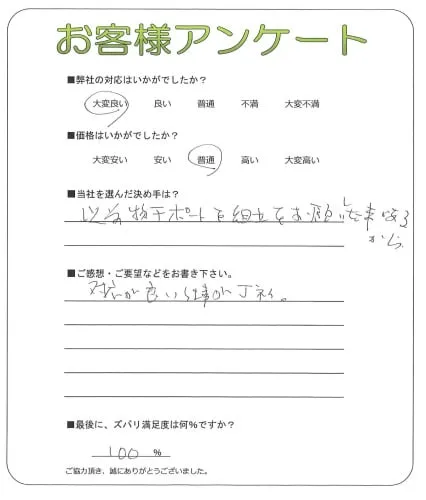 お客様アンケート
■弊社の対応はいかがでしたか?
大変良い 良い 普通 不満 大変不満
■価格はいかがでしたか?
大変安い 安い 普通 高い 大変高い
■当社を選んだ決め手は?
以前物干ポートを組立をお願いした事有る
から
■ご感想・ご要望などをお書き下さい。
対応が良い仕事が丁ネイ。
■最後に、ズバリ満足度は何%ですか?
100 %
ご協力頂き、誠にありがとうございました。